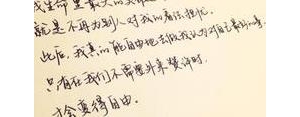 我生命里最大的突破
就是不再为别人对我的看法担忧。
此后，我真的能自由地去做我认为对自己最好的事。
只有在我们不需要外来赞许时，
才会变得自由。